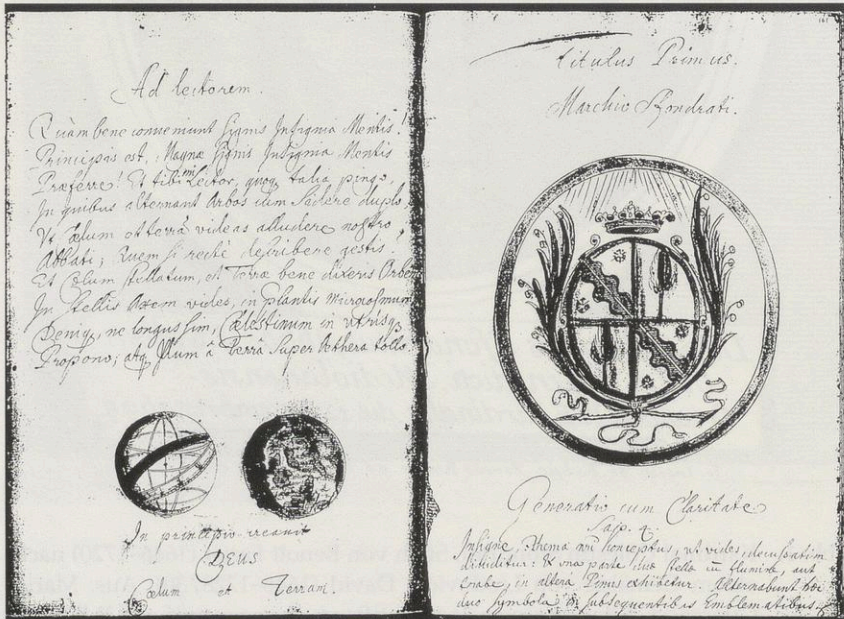 Ad lectorem.
Quàm bene conveniunt signis Insignia Mentis!
Principis est, Magnæ signis Insignia Mentis
Præferre! Et tibi mi Lector, quoq talia pingo,
In quibus alternant Arbos cum Sidere duplo,
Vt Cœlum et terrã videas alludere nostro
Abbati; Quem si rectè describere gestis,
Et Cœlum stellatum, et Terræ bene dixeris Orbem
In stellis Axem vides, in plantis
Deniq, ne longus sim, Cœlestinum in utrisq
Propono; atq Illum à Terrâ Super Æthera tollo.
In principio creavit
DEUS
Cœlum et Terram.
titulus Primus.
Marchio Sfondrati.
Generatio cum Claritate
Sap. 4.
Insigne, thema mei conceptus, ut vides, decussatim
dividitur: Ex una parte stella cũ flumine, aut
trabe, in altera Pinus exhibetur. Alternabunt hæc
duo symbola in subsequentibus Emblematibus.